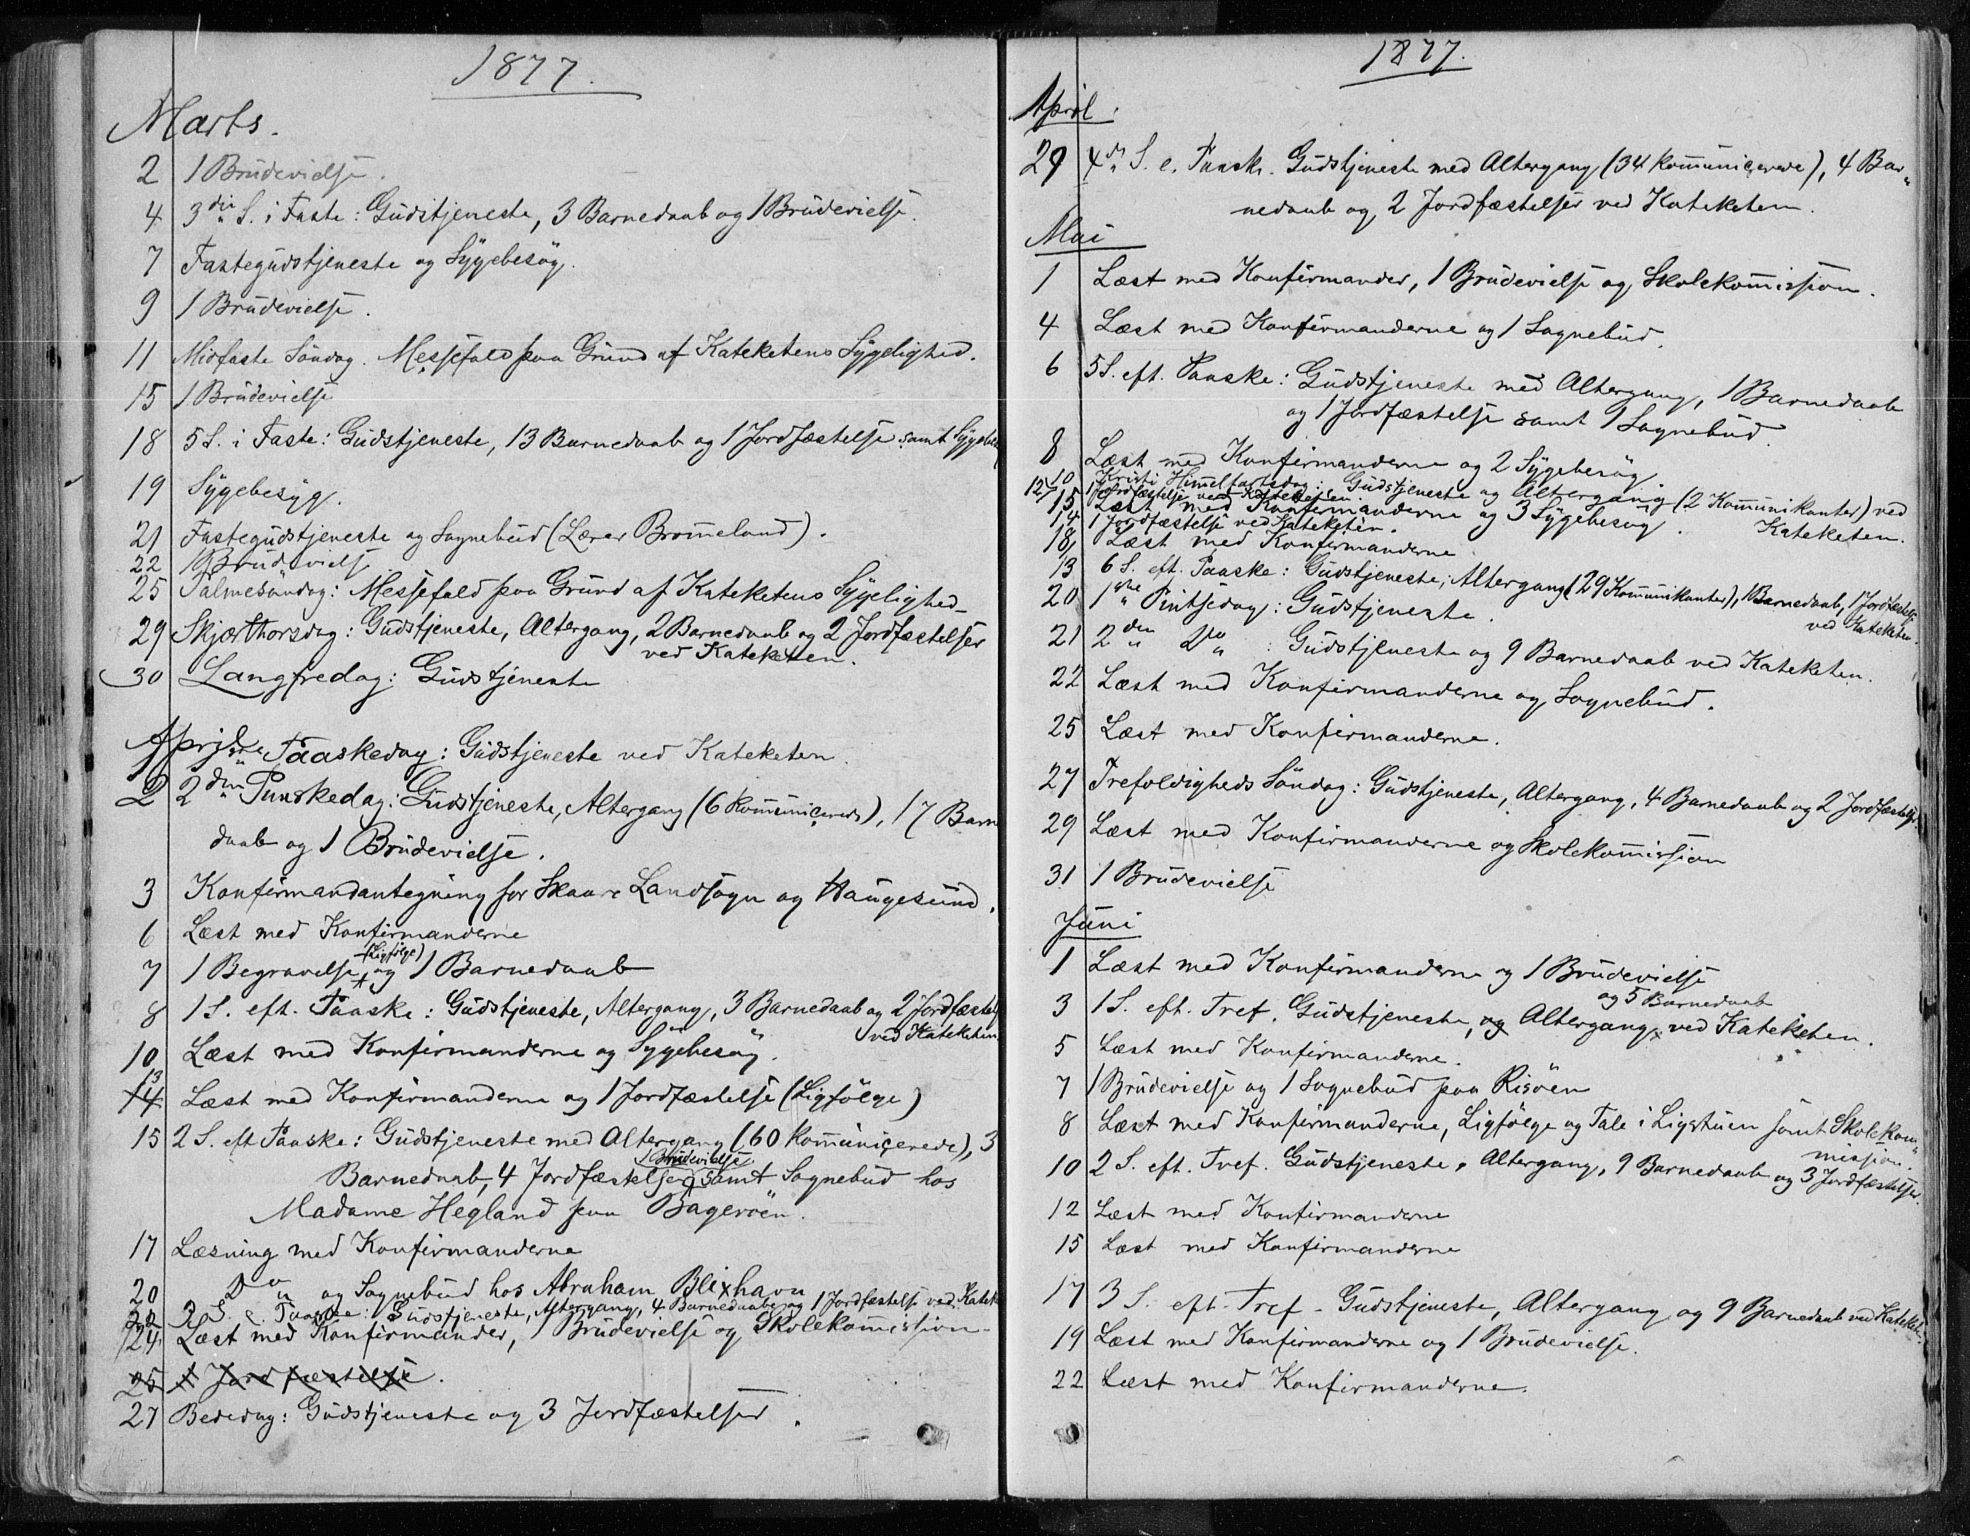 1877.
Marts.
2 1 Brüdevielse.
4 3die S. i Faste: Güdstjeneste, 3 Barnedaab og 1 Brüdevielse.
7 Fastegüdstjeneste og Sÿgebesøg.
9 1 Brüdevielse.
11 Midfaste Søndag. Messefald paa Gründ af Kateketens Sÿgelighed.
15 1 Brüdevielse
18 5 S. i Faste: Güdstjeneste, 13 Barnedaab og 1 Jordfæstelse samt Sÿgebe
19 Sÿgebesÿg.
21 Fastegüdstjeneste og Sognebüd (Lærer Brom̄eland).
22 1 Brüdevielse
25 Palmesöndag: Messefald paa Gründ af Kateketens Sÿgelighed-
29 Skjærthorsdag: Güdstjeneste, Altergang, 2 Barnedaab og 2 Jordfæstelser
ved Kateketen.
30 Langfredag: Güdstjeneste
April
1ste Paaskedag: Güdstjeneste ved Kateketen.
2 2den Paaskedag: Güdstjeneste, Altergang (6 kom̄ünicerede), 17 Barne
daab og 1 Brüdevielse.
3 Konfirmandantegning for Skaare Landsogn og Haugesünd.
6 Læst med Konfirmanderne
7 1 Begravelse (Ligfølge) og 1 Barnedaab
8 1 S. eft. Paaske: Güdstjeneste, Altergang, 3 Barnedaab og 2 Jordfæstel
ved Kateketen
10 Læst med Konfirmanderne og Sÿgebesøg.
13 14 Læst med Konfirmanderne og 1 Jordfæstelse (Ligfølge)
15 2 S. eft Paaske: Güdstjeneste med Altergang (60 kom̄ünicerede), 3
Barnedaab, 4 Jordfæstelser, 1 Brüdevielse samt Sognebüd hos
Madame Hegland paa Bagerøen.
17 Læsning med Konfirmanderne
20 Do og Sognebüd hos Abraham Blixhavn
22 3 S. e. Paaske: Güdstjeneste, Altergang, 4 Barnedaab og 1 Jordfæstelse ved Katek
24 Læst med Konfirmander, 1 Brüdevielse og Skolekom̄ission-
25 1 Jordfæstelse.
27 Bededag: Güdstjeneste og 3 Jordfæstelser.
1877.
April:
29 4de S. e. Paaske. Güdstjeneste med Altergang (34 kom̄ünicerede), 4 Bar„
nedaab og 2 Jordfæstelser ved Kateketen.
Mai
1 Læst med Konfirmander, 1 Brüdevielse og Skolekom̄ission.
4 Læst med Konfirmanderne og 1 Sognebüd.
6 5 S. eft. Paaske: Güdstjeneste med Altergang, 1 Barnedaab
og 1 Jordfæstelse samt 1 Sognebüd.
8 Læst med Konfirmanderne og 2 Sÿgebesøg
10 Kristi Him̄elfartsdag: Güdstjeneste og Altergang (2 Kom̄ünikanter) ved
Kateketen.
12 1 Jordfæstelse ved Kateketen.
15 Læst med Konfirmanderne og 3 Sÿgebesøg.
14 1 Jordfæstelse ved Kateketen.
18 Læst med Konfirmanderne
13 6 S. eft. Paaske: Güdstjeneste, Altergang (29 Kom̄ünikanter), 1 Barnedaab, 1 Jordfæstelse
ved Kateketen.
20 1ste Pintsedag: Güdstjeneste.
21 2den Do : Güdstjeneste og 9 Barnedaab ved Kateketen.
22 Læst med Konfirmanderne og Sognebüd.
25 Læst med Konfirmanderne.
27 Trefoldigheds Söndag: Güdstjeneste, Altergang, 4 Barnedaab og 2 Jordfæstelser.
29 Læst med Konfirmanderne og Skolekom̄ission
31 1 Brüdevielse
Jüni
1 Læst med Konfirmanderne og 1 Brüdevielse
3 1 S. eft. Tref. Güdstjeneste, og Altergang og 5 Barnedaab ved Kateketen.
5 Læst med Konfirmanderne.
7 1 Brüdevielse og 1 Sognebüd paa Risöen
8 Læst med Konfirmanderne, Ligfølge og Tale i Ligstüen samt Skolekom„
mission.
10 2 S. eft. Tref. Güdstjeneste, Altergang, 9 Barnedaab og 3 Jordfæstelser.
12 Læst med Konfirmanderne
15 Læst med Konfirmanderne
17 3 S. eft. Tref- Güdstjeneste, Altergang og 9 Barnedaab ved Kateketen.
19 Læst med Konfirmanderne og 1 Brüdevielse.
22 Læst med Konfirmanderne.